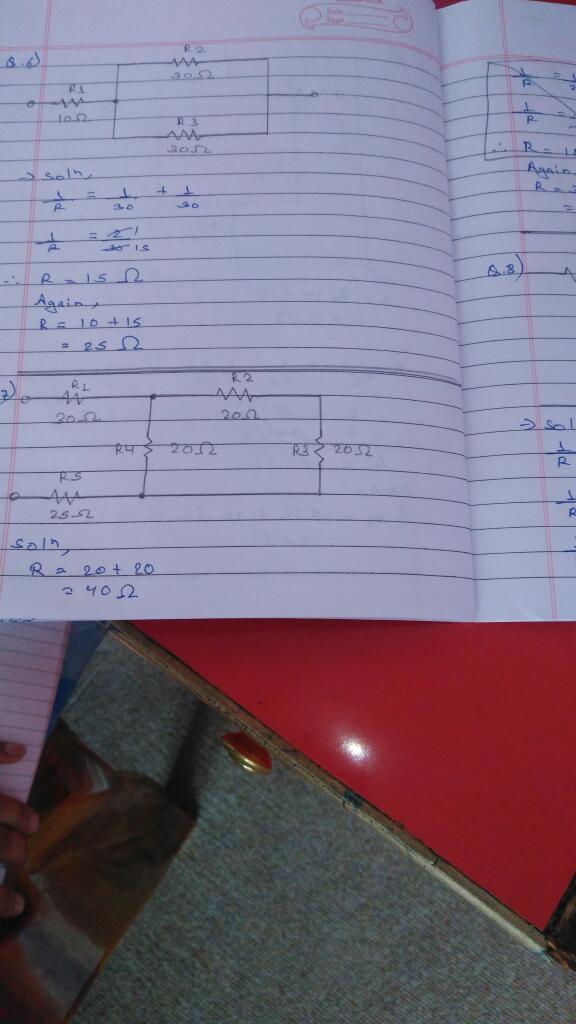 Date
Page
Q.6)
R2
30Ω
R1
10Ω
R3
30Ω
→ Soln,
1/R = 1/30 + 1/30
1/R = 2/30 1/15
∴ R = 15 Ω
Again,
R = 10 + 15
= 25 Ω
7)
R1
30Ω
R2
20Ω
R4 20Ω
R3 20Ω
R5
25Ω
Soln,
R = 20 + 20
= 40 Ω
1/R =
1/R =
∴ R =
Again
R =
=
Q.8)
→ Sol
1/R
1/R